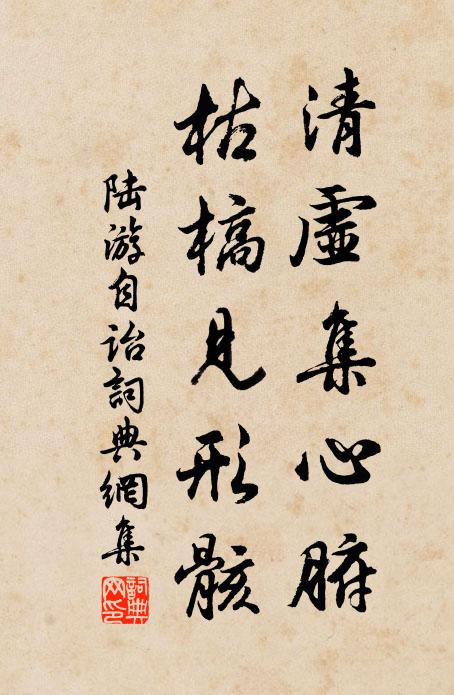 清虛集心腑
枯槁見形骸
陆游自诒詞典網集
詞典网印